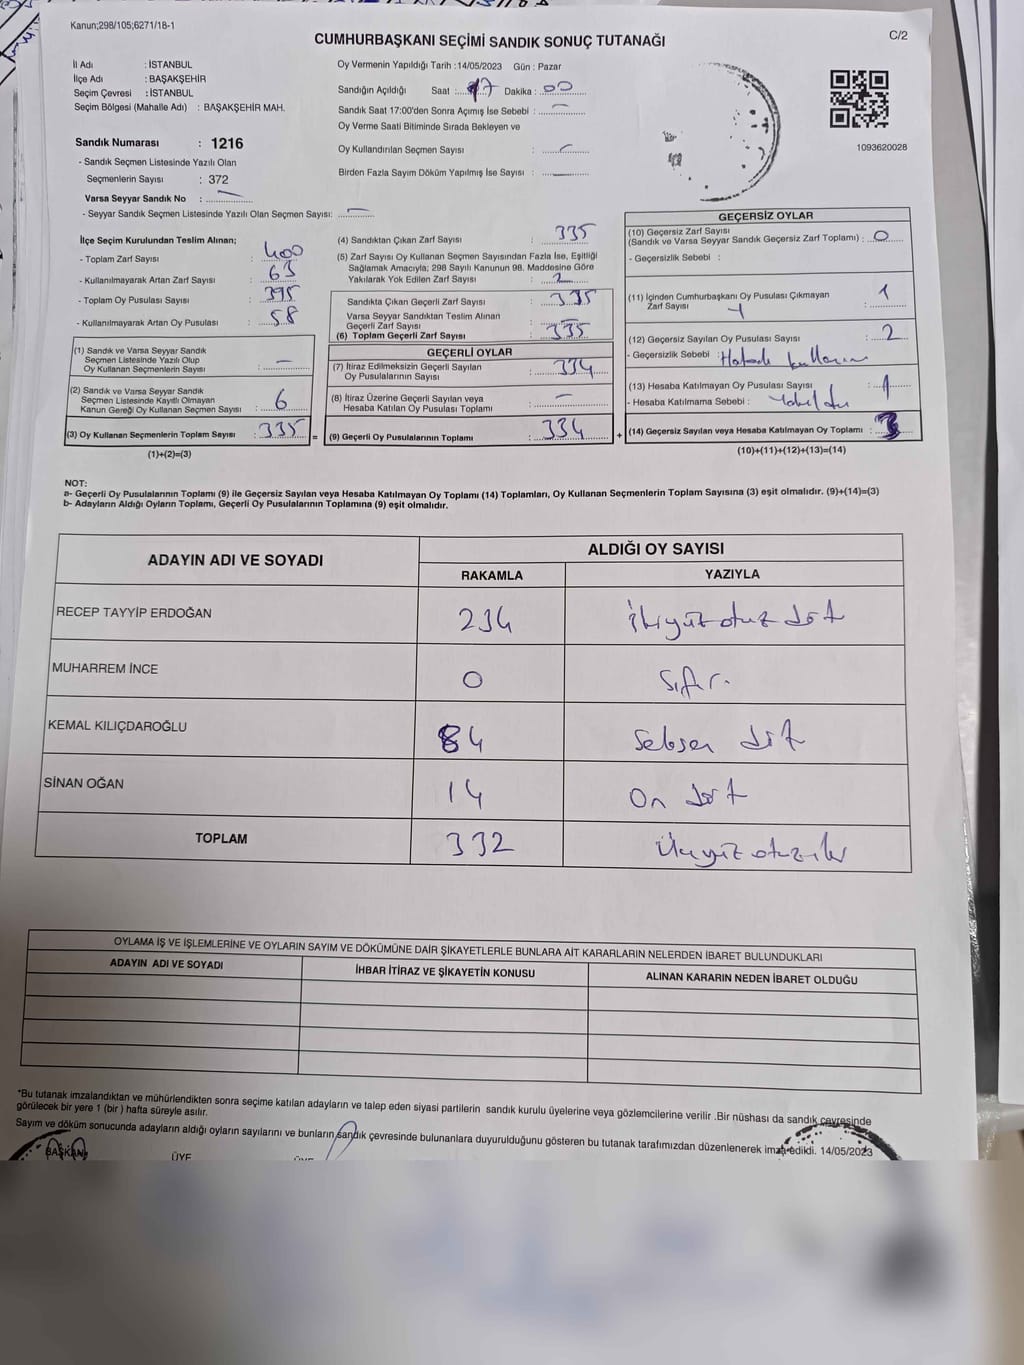 Kanun;298/105;6271/18-1
C/2
CUMHURBAŞKANI SEÇİMİ SANDIK SONUÇ TUTANAĞI
İl Adı : İSTANBUL
İlçe Adı : BAŞAKŞEHİR
Seçim Çevresi : İSTANBUL
Seçim Bölgesi (Mahalle Adı) : BAŞAKŞEHİR MAH.
Sandık Numarası : 1216
- Sandık Seçmen Listesinde Yazılı Olan
Seçmenlerin Sayısı : 372
Varsa Seyyar Sandık No : —
- Seyyar Sandık Seçmen Listesinde Yazılı Olan Seçmen Sayısı: —
Oy Vermenin Yapıldığı Tarih :14/05/2023 Gün : Pazar
Sandığın Açıldığı Saat : 17 Dakika : 00
Sandık Saat 17:00'den Sonra Açımış İse Sebebi : —
Oy Verme Saati Bitiminde Sırada Bekleyen ve
Oy Kullandırılan Seçmen Sayısı : —
Birden Fazla Sayım Döküm Yapılmış İse Sayısı : —
1093620028
İlçe Seçim Kurulundan Teslim Alınan;
- Toplam Zarf Sayısı : 400
- Kullanılmayarak Artan Zarf Sayısı : 63
- Toplam Oy Pusulası Sayısı : 395
- Kullanılmayarak Artan Oy Pusulası : 58
(1) Sandık ve Varsa Seyyar Sandık
Seçmen Listesinde Yazılı Olup
Oy Kullanan Seçmenlerin Sayısı : —
(2) Sandık ve Varsa Seyyar Sandık
Seçmen Listesinde Kayıtlı Olmayan
Kanun Gereği Oy Kullanan Seçmen Sayısı : 6
(3) Oy Kullanan Seçmenlerin Toplam Sayısı : 335
(1)+(2)=(3)
(4) Sandıktan Çıkan Zarf Sayısı : 335
(5) Zarf Sayısı Oy Kullanan Seçmen Sayısından Fazla İse, Eşitliği
Sağlamak Amacıyla; 298 Sayılı Kanunun 98. Maddesine Göre
Yakılarak Yok Edilen Zarf Sayısı : 2
Sandıkta Çıkan Geçerli Zarf Sayısı : 335
Varsa Seyyar Sandıktan Teslim Alınan
Geçerli Zarf Sayısı : —
(6) Toplam Geçerli Zarf Sayısı : 335
GEÇERLİ OYLAR
(7) İtiraz Edilmeksizin Geçerli Sayılan
Oy Pusulalarının Sayısı : 334
(8) İtiraz Üzerine Geçerli Sayılan veya
Hesaba Katılan Oy Pusulası Toplamı : —
= (9) Geçerli Oy Pusulalarının Toplamı : 334 +
GEÇERSİZ OYLAR
(10) Geçersiz Zarf Sayısı
(Sandık ve Varsa Seyyar Sandık Geçersiz Zarf Toplamı) : 0
- Geçersizlik Sebebi :
(11) İçinden Cumhurbaşkanı Oy Pusulası Çıkmayan
Zarf Sayısı : 1
(12) Geçersiz Sayılan Oy Pusulası Sayısı : 2
- Geçersizlik Sebebi : Hatalı kullanım
(13) Hesaba Katılmayan Oy Pusulası Sayısı : 1
- Hesaba Katılmama Sebebi : Yakıldı
(14) Geçersiz Sayılan veya Hesaba Katılmayan Oy Toplamı : 3
(10)+(11)+(12)+(13)=(14)
NOT:
a- Geçerli Oy Pusulalarının Toplamı (9) ile Geçersiz Sayılan veya Hesaba Katılmayan Oy Toplamı (14) Toplamları, Oy Kullanan Seçmenlerin Toplam Sayısına (3) eşit olmalıdır. (9)+(14)=(3)
b- Adayların Aldığı Oyların Toplamı, Geçerli Oy Pusulalarının Toplamına (9) eşit olmalıdır.
ADAYIN ADI VE SOYADI
ALDIĞI OY SAYISI
RAKAMLA YAZIYLA
RECEP TAYYİP ERDOĞAN 234 İkiyüz otuz dört
MUHARREM İNCE 0 Sıfır.
KEMAL KILIÇDAROĞLU 84 Seksen dört
SİNAN OĞAN 14 On dört
TOPLAM 332 Üçyüz otuz iki
OYLAMA İŞ VE İŞLEMLERİNE VE OYLARIN SAYIM VE DÖKÜMÜNE DAİR ŞİKAYETLERLE BUNLARA AİT KARARLARIN NELERDEN İBARET BULUNDUKLARI
ADAYIN ADI VE SOYADI İHBAR İTİRAZ VE ŞİKAYETİN KONUSU ALINAN KARARIN NEDEN İBARET OLDUĞU
*Bu tutanak imzalandıktan ve mühürlendikten sonra seçime katılan adayların ve talep eden siyasi partilerin sandık kurulu üyelerine veya gözlemcilerine verilir .Bir nüshası da sandık çevresinde
görülecek bir yere 1 (bir ) hafta süreyle asılır.
Sayım ve döküm sonucunda adayların aldığı oyların sayılarını ve bunların sandık çevresinde bulunanlara duyurulduğunu gösteren bu tutanak tarafımızdan düzenlenerek imza edildi. 14/05/2023
BAŞKAN ÜYE